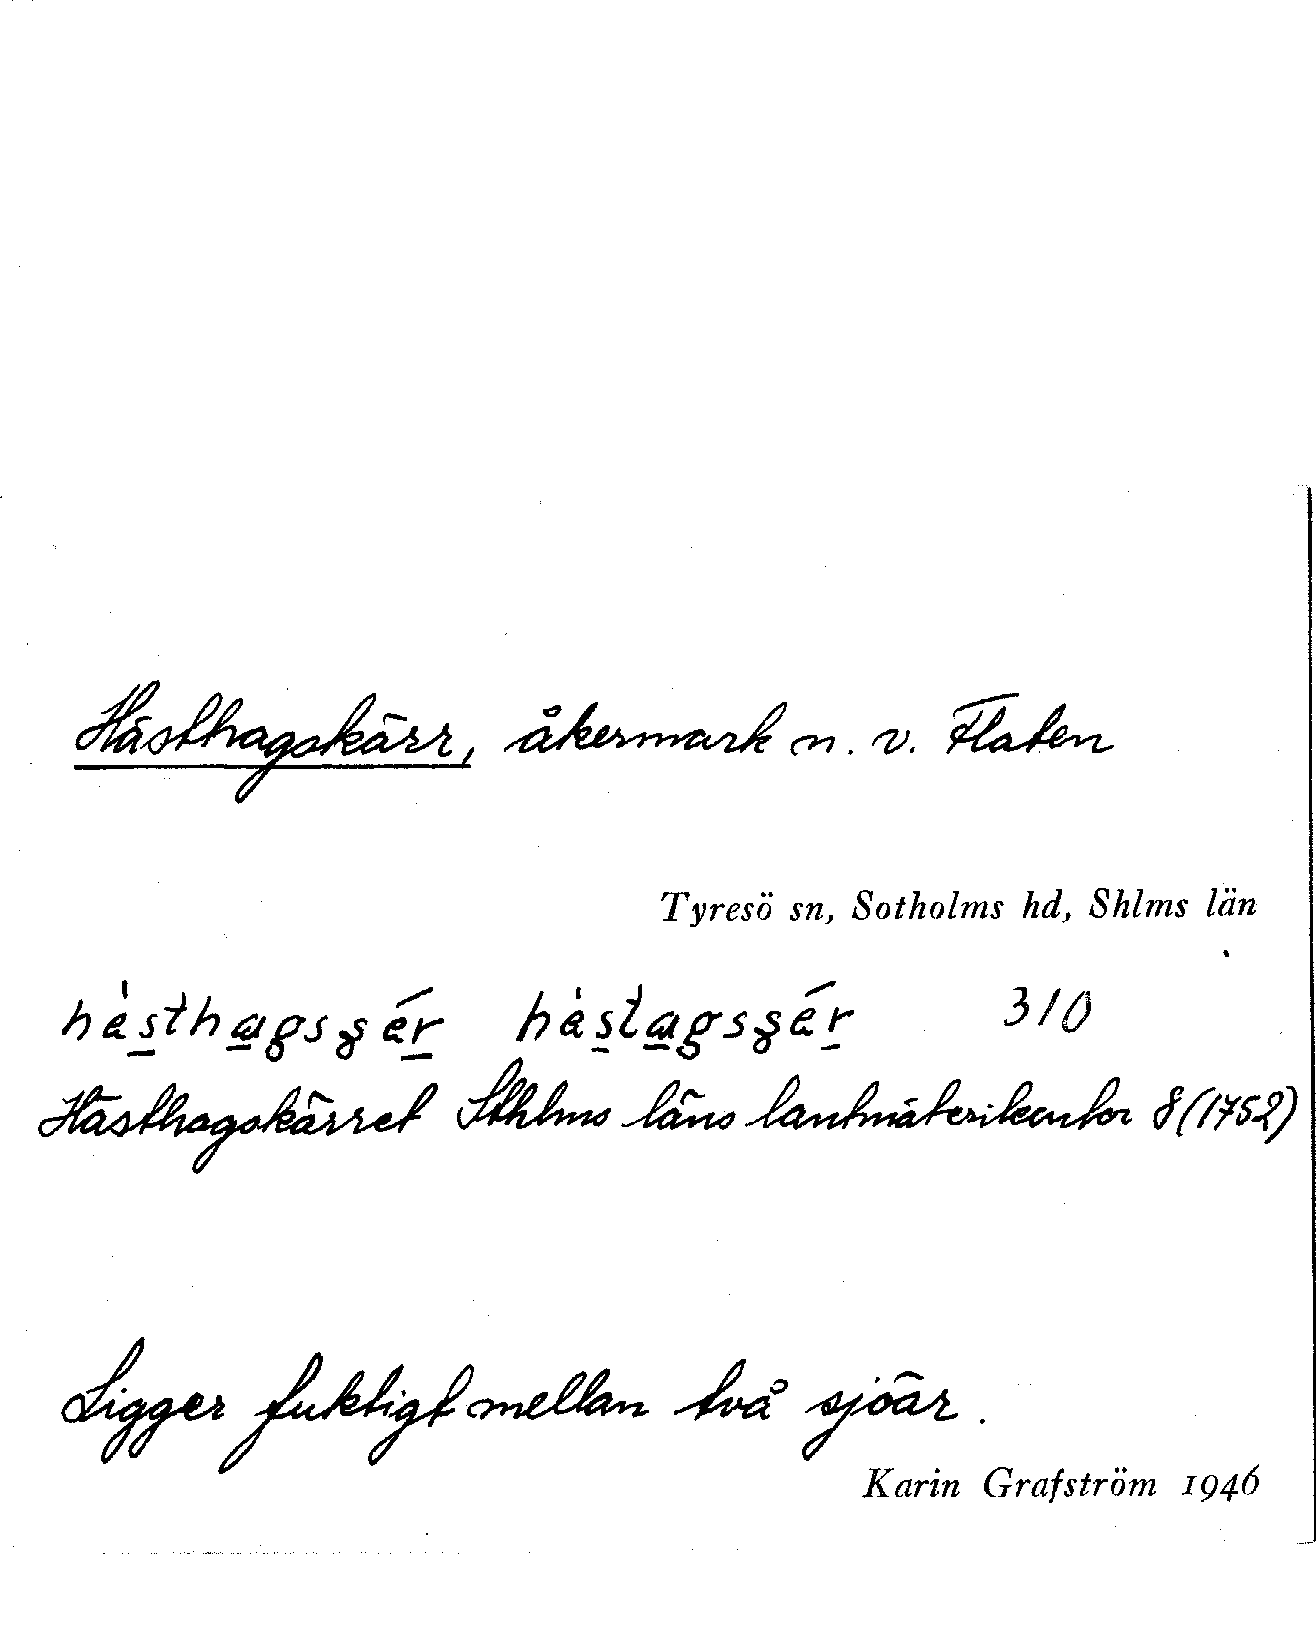 Hästhagskärr, åkermark n. v. Flaten
Tyresö sn, Sotholms hd, Shlms län
310
Hästhagskärret Sthlms läns lantmäterikontor 8 (1752)
Ligger fuktigt mellan två sjöar.
Karin Grafström 1946